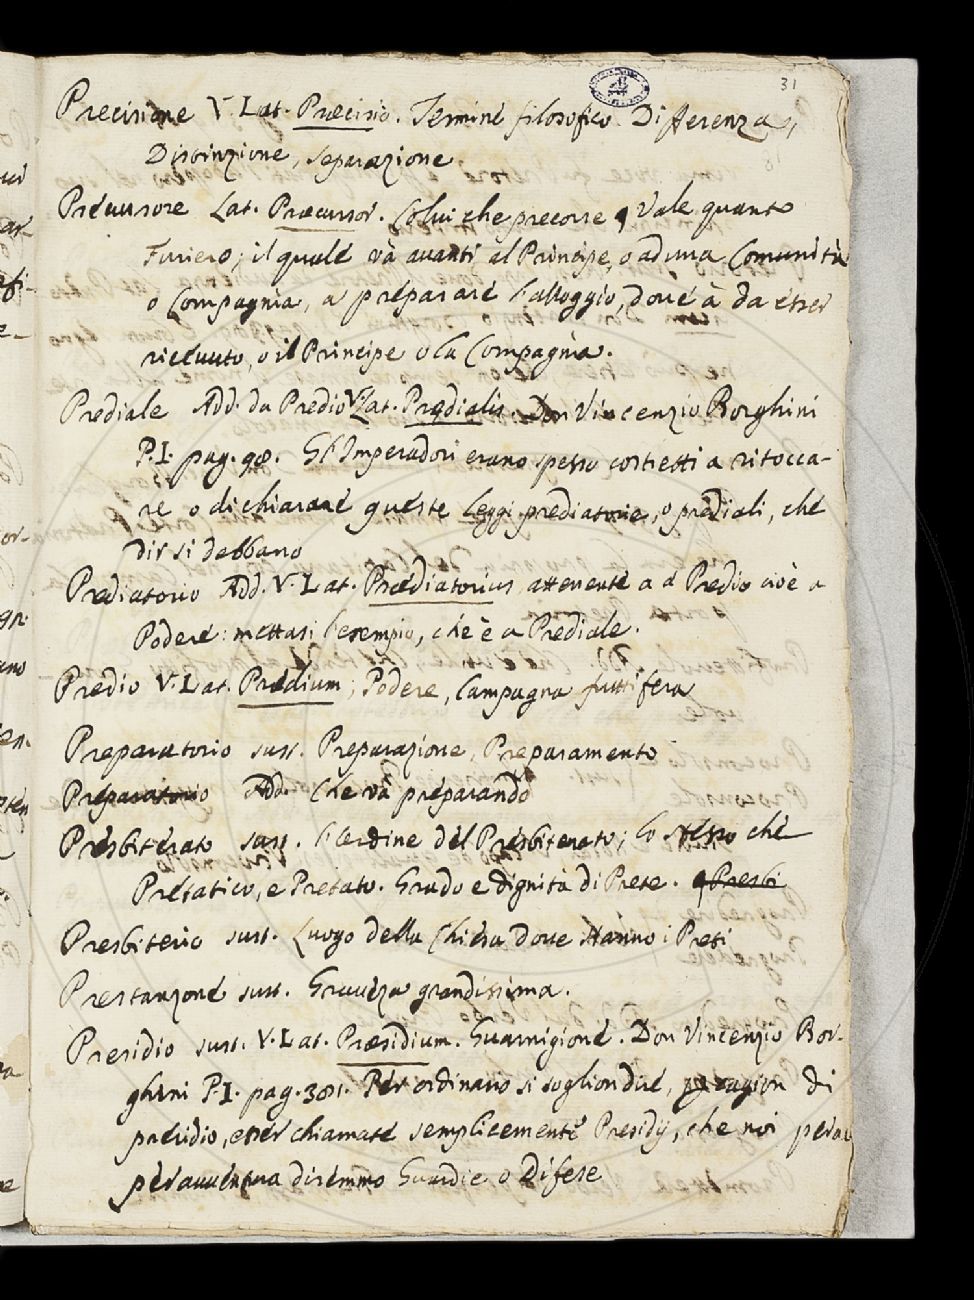 31
Precisione V. Lat. Præcisio. Termine filosofico. Differenza,
Distinzione, separazione.
Precursore Lat. Præcursor. Colui che precorre, Vale quanto
Furiero; il quale và avanti al Principe, o ad una Comunità
o Compagnia, a preparare l'alloggio, dove à da esser
ricevuto, o il Principe o la Compagnia.
Prediale Add. da Predio V. Lat. Prædialis. Don Vincenzio Borghini
P.I. pag. 98. Gl'Imperadori erano spesso costretti a ritocca-
re o dichiarare queste leggi prediatorie, o prediali, che
dir si debbano
Prediatorio Add. V. Lat. Prædiatorius attenente a a Predio cioè a
Podere: mettasi l'esempio, che è a Prediale.
Predio V. Lat. Prædium; Podere, Campagna fruttifera
Preparatorio sust. Preparazione, Preparamento
Preparatorio Add. Che và preparando
Presbiterato sust. l'Ordine del Presbiterato; lo stesso che
Pretatico, e Pretato. Grado e dignità di Prete. Presbi
Presbiterio sust. Luogo della Chiesa dove stanno i Preti
Prestanzone sust. Gravezza grandissima.
Presidio sust. V. Lat. Præsidium. Guarnigione. Don Vincenzio Bor-
ghini P.I. pag. 301. Per ordinario si soglion due, ragion di
presidio, esser chiamate semplicemente Presidij, che noi
peravventura diremmo Guardie o Difese